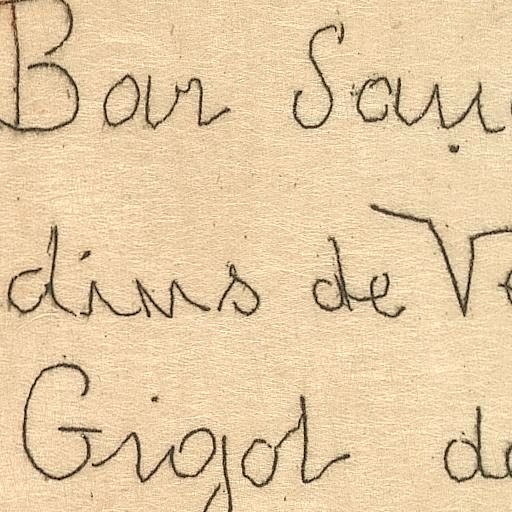 Bar Sau
dins de Ve
Gigot de